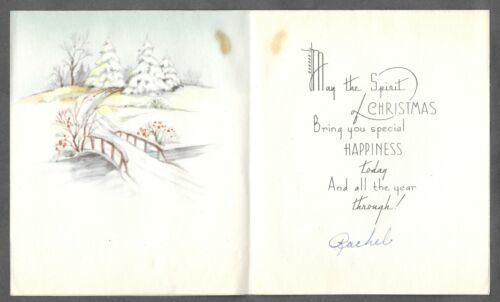 May the Spirit
of CHRISTMAS
Bring you special
HAPPINESS
today
And all the year
through!
Rachel